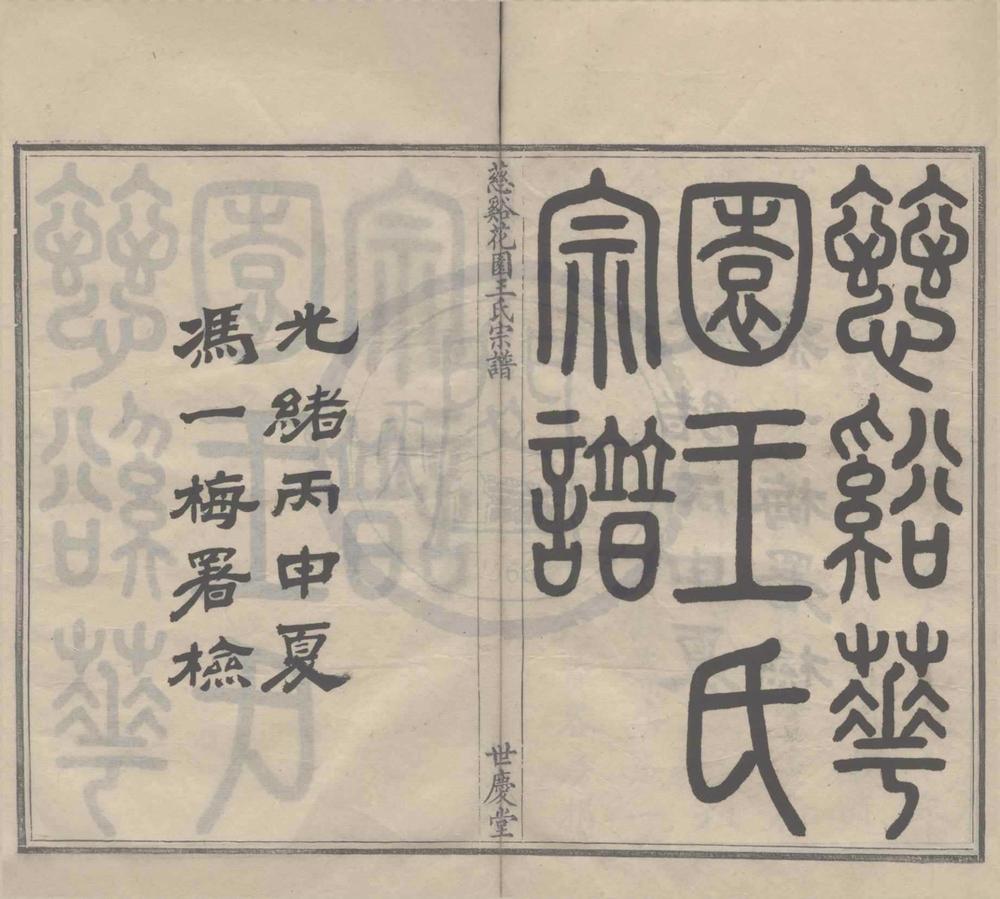 慈谿華
園王氏
宗譜
慈谿花園王氏宗譜
世慶堂
光緒丙申夏
馮一梅署檢